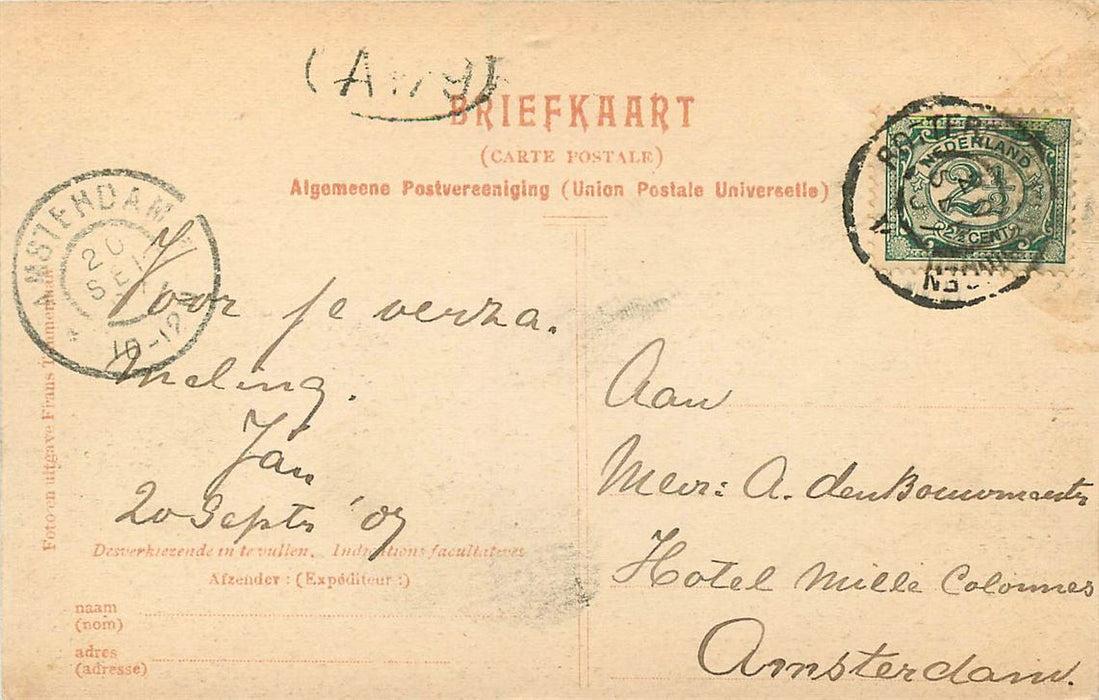 BRIEFKAART
(CARTE POSTALE)
Algemeene Postvereeniging (Union Postale Universelle)
NEDERLAND
2½
2½ CENT
AMSTERDAM
20
SEP
10-12
Voor je verza.
meling.
Jan
20 Septr '07
Desverkiezende in te vullen. Indications facultatives
Afzender: (Expéditeur:)
naam
(nom)
adres
(adresse)
Foto en uitgave Frans
Aan
A. den Bouwmeester
Hotel Mille Colonnes
Amsterdam.